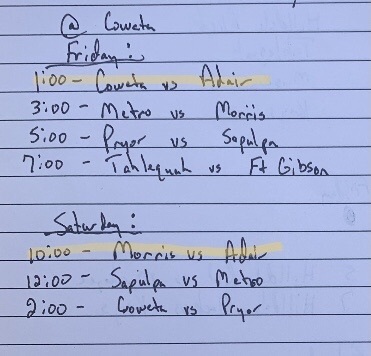 @ Coweta
Friday:
1:00 - Coweta vs Adair
3:00 - Metro vs Morris
5:00 - Pryor vs Sapulpa
7:00 - Tahlequah vs Ft Gibson
Saturday:
10:00 - Morris vs Adair
12:00 - Sapulpa vs Metro
2:00 - Coweta vs Pryor